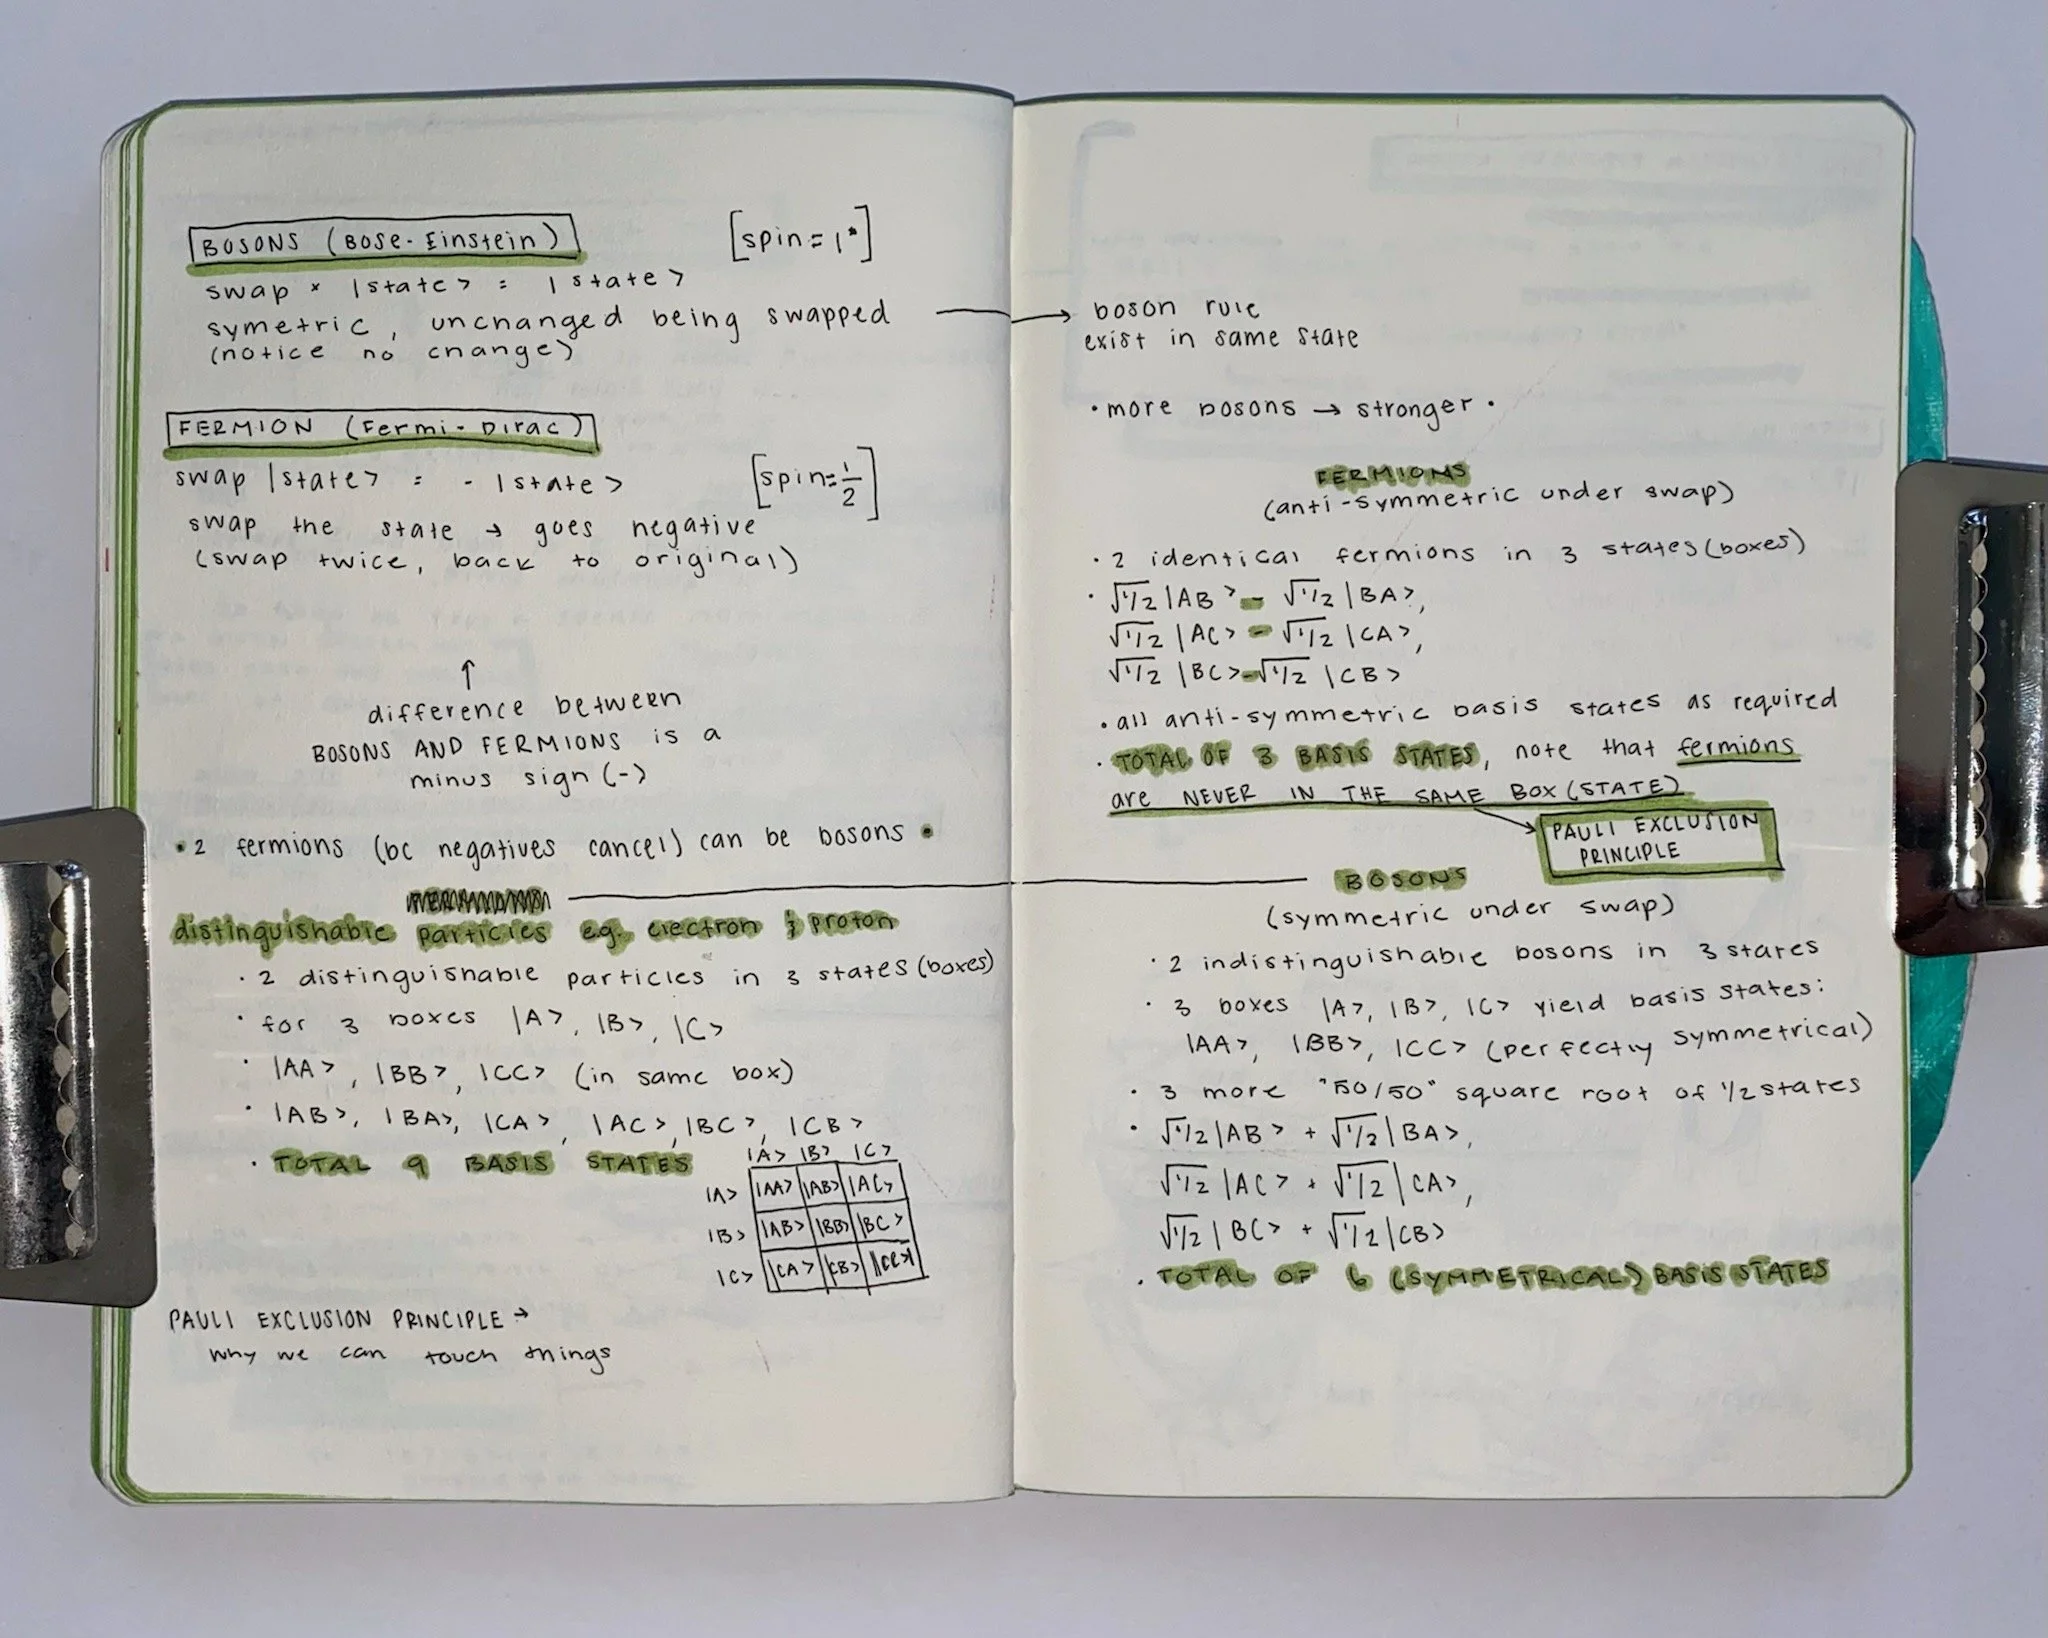 BOSONS (Bose-Einstein) [spin = 1*]
swap * |state> = |state>
symetric, unchanged being swapped
(notice no change)
FERMION (Fermi-Dirac)
swap |state> = - |state> [spin = 1/2]
swap the state → goes negative
(swap twice, back to original)
↑
difference between
BOSONS AND FERMIONS is a
minus sign (-)
• 2 fermions (bc negatives cancel) can be bosons •
distinguishable particles e.g. electron & proton
• 2 distinguishable particles in 3 states (boxes)
• for 3 boxes |A>, |B>, |C>
• |AA>, |BB>, |CC> (in same box)
• |AB>, |BA>, |CA>, |AC>, |BC>, |CB>
• TOTAL 9 BASIS STATES
|A> |B> |C>
|A> |AA> |AB> |AC>
|B> |AB> |BB> |BC>
|C> |CA> |CB> |CC>
PAULI EXCLUSION PRINCIPLE →
why we can touch things
→ boson rule
exist in same state
• more bosons → stronger •
FERMIONS
(anti-symmetric under swap)
• 2 identical fermions in 3 states (boxes)
• √1/2 |AB> - √1/2 |BA>,
√1/2 |AC> - √1/2 |CA>,
√1/2 |BC> - √1/2 |CB>
• all anti-symmetric basis states as required
• TOTAL OF 3 BASIS STATES, note that fermions
are NEVER IN THE SAME BOX (STATE)
PAULI EXCLUSION
PRINCIPLE
BOSONS
(symmetric under swap)
• 2 indistinguishable bosons in 3 states
• 3 boxes |A>, |B>, |C> yield basis states:
|AA>, |BB>, |CC> (perfectly symmetrical)
• 3 more "50/50" square root of 1/2 states
• √1/2 |AB> + √1/2 |BA>,
√1/2 |AC> + √1/2 |CA>,
√1/2 |BC> + √1/2 |CB>
• TOTAL OF 6 (SYMMETRICAL) BASIS STATES